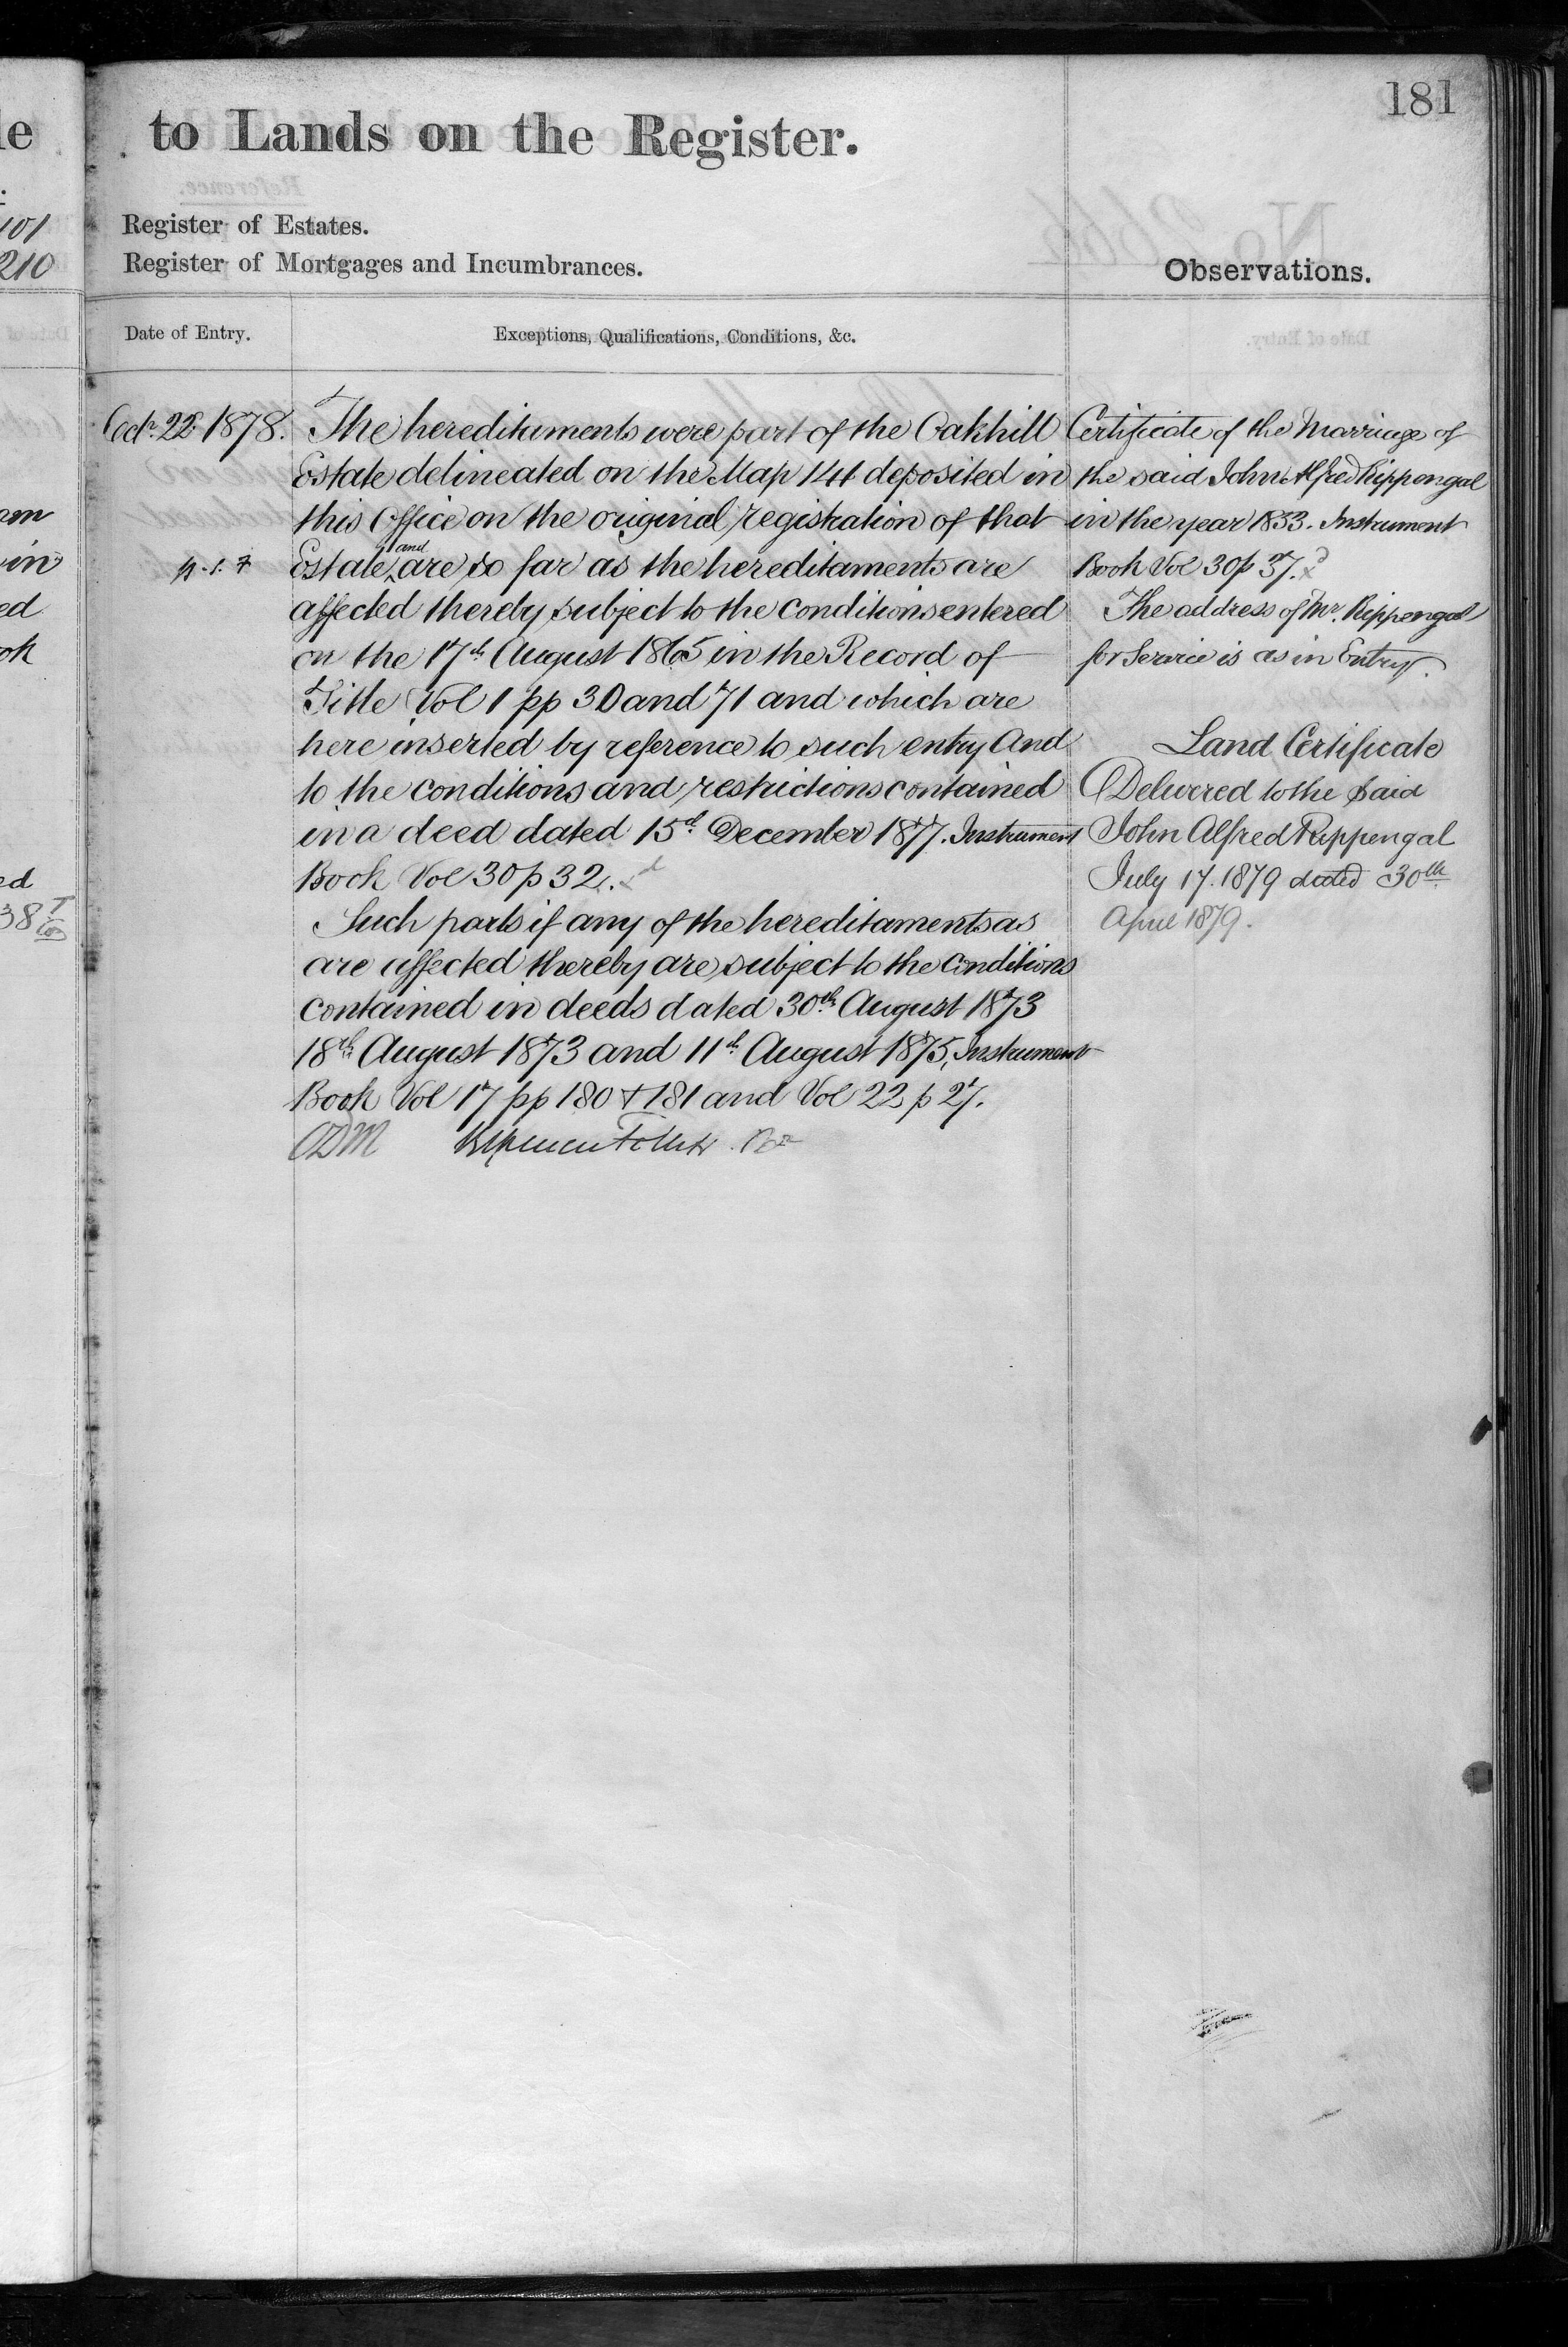 181
to Lands on the Register.
Register of Estates.
Register of Mortgages and Incumbrances.
Observations.
Date of Entry.
Exceptions, Qualifications, Conditions, &c.
Octr. 22 1878.
The hereditaments were part of the Oakhill
Estate delineated on the Map 144 deposited in
this Office on the original registration of that
Estate and are so far as the hereditaments are
affected thereby subject to the conditions entered
on the 17th August 1865 in the Record of
Title Vol 1 pp 30 and 71 and which are
here inserted by reference to such entry And
to the conditions and restrictions contained
in a deed dated 15th December 1877. Instrument
Book Vol 30 p 32.
Such parts if any of the hereditaments as
are affected thereby are subject to the Conditions
contained in deeds dated 30th August 1873
18th August 1873 and 11th August 1875, Instrument
Book Vol 17 pp 180 & 181 and Vol 22 p 27.
ODM
Certificate of the Marriage of
the said John Alfred Rippengal
in the year 1833. Instrument
Book Vol 30 p 37.
The address of Mr. Rippengal
for Service is as in Entry.
Land Certificate
Delivered to the said
John Alfred Rippengal
July 17. 1879 dated 30th
April 1879.
101
210
in
ed
ok
ed
38